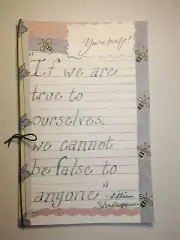 "If we are
true to
ourselves,
we cannot
be false to
anyone"